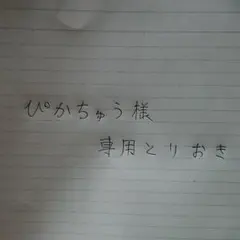 ぴかちゅう様
専用とりおき